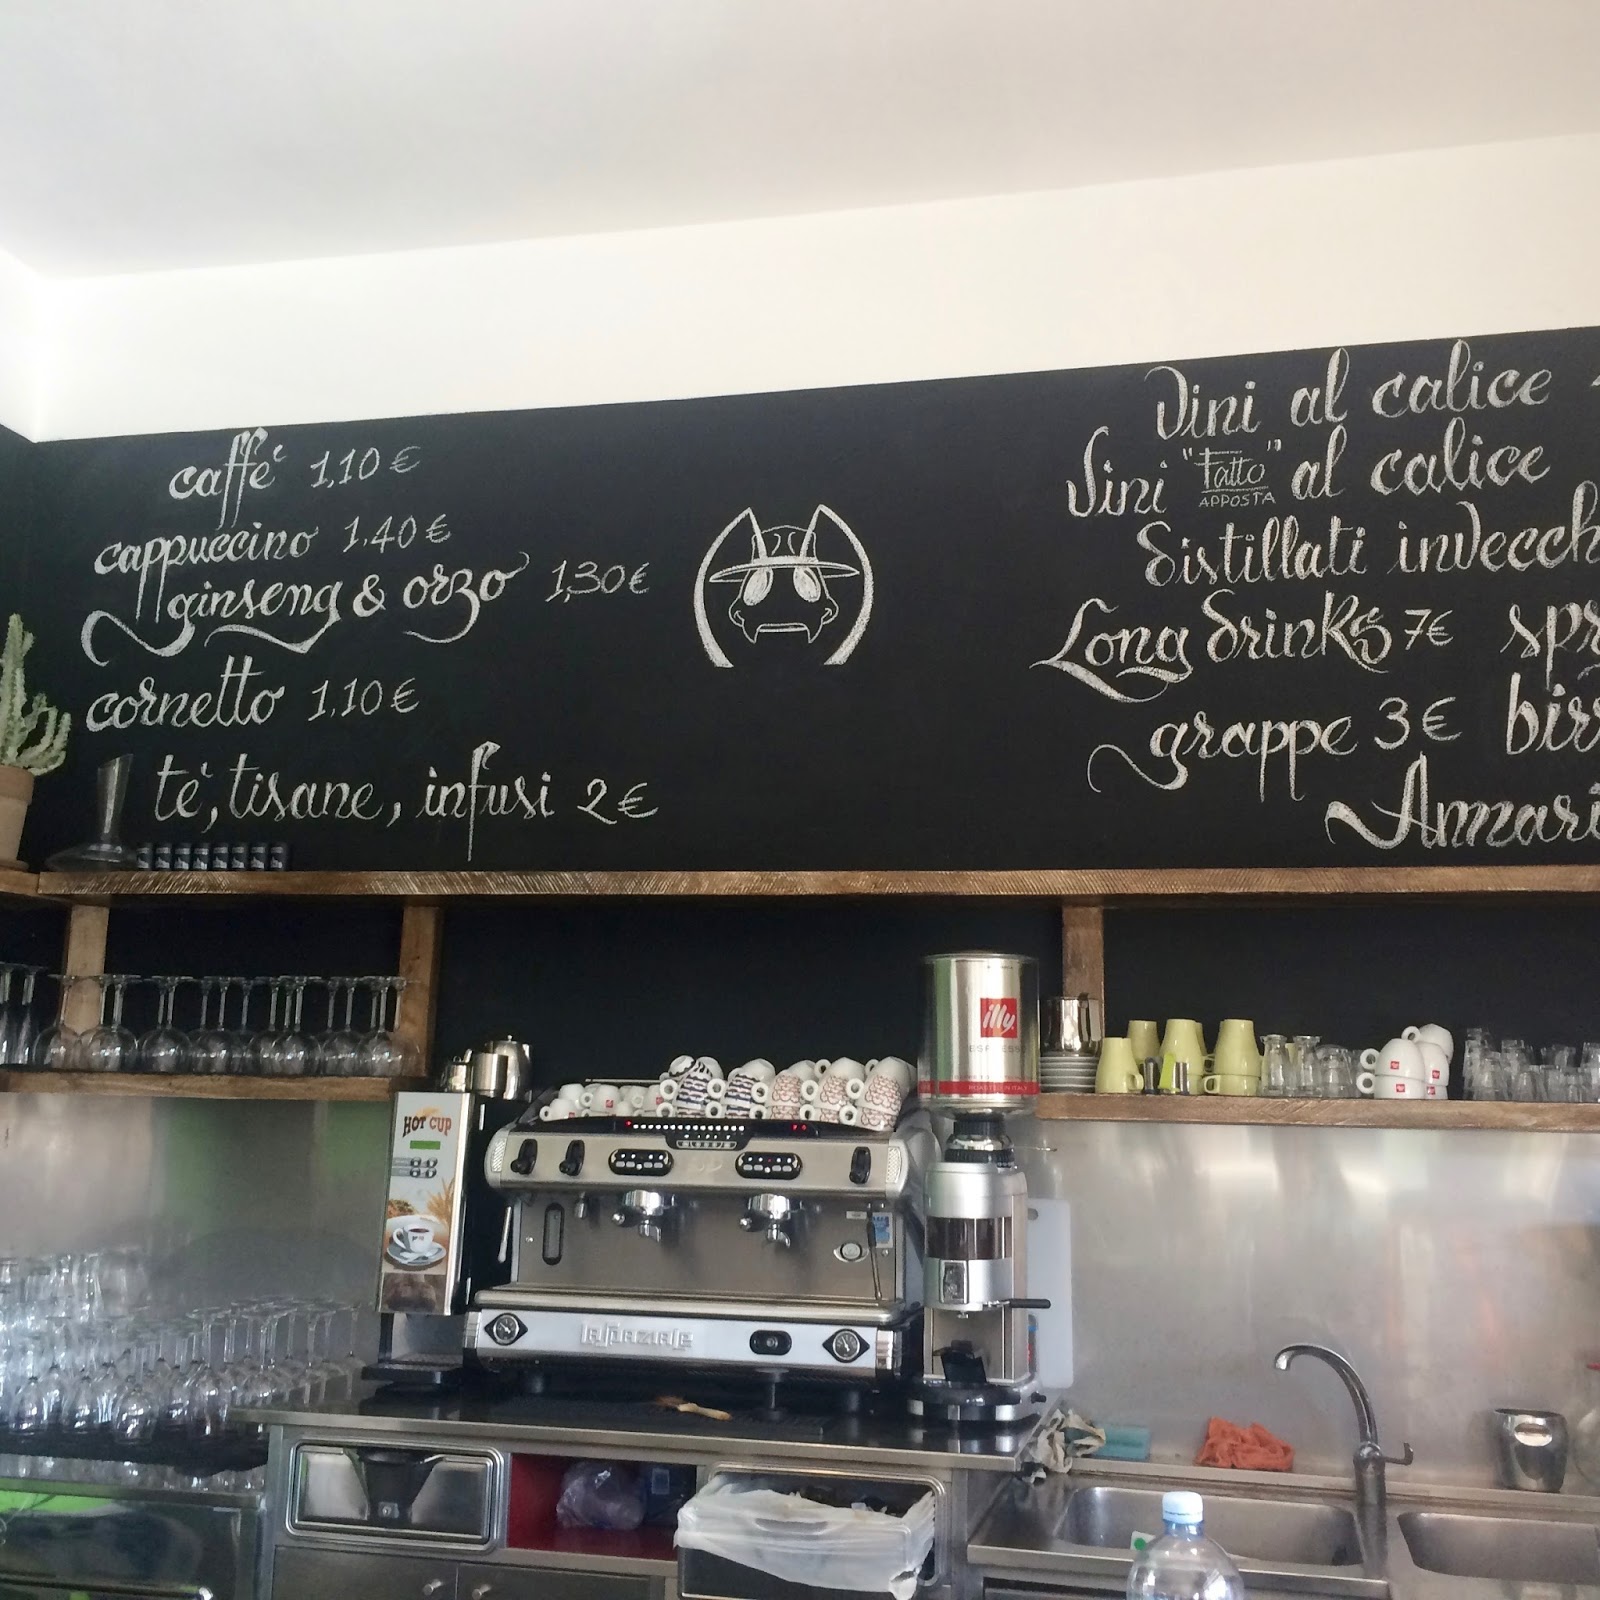 caffè 1,10 €
cappuccino 1,40 €
ginseng & orzo 1,30 €
cornetto 1,10 €
tè, tisane, infusi 2 €
Vini al calice
Vini "Fatto APPOSTA" al calice
Distillati
Long drinks 7 €
grappe 3 €
illy
HOT CUP
illy
LA SPAZIALE